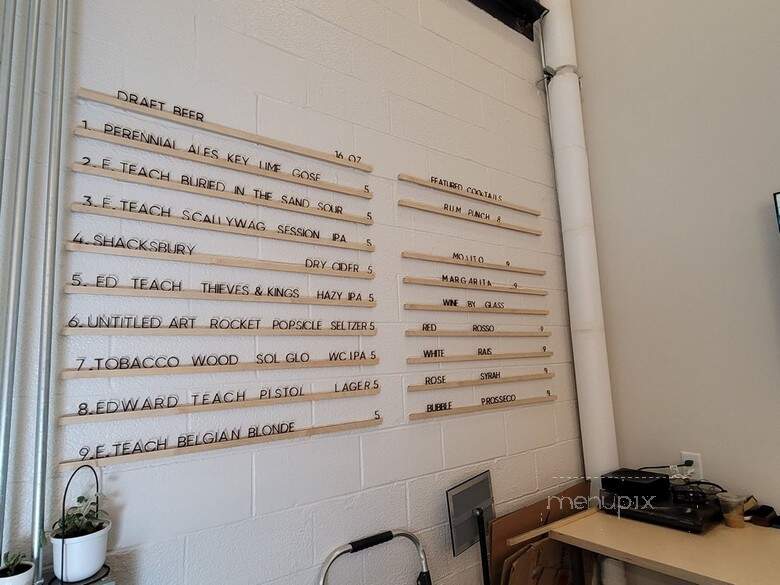 DRAFT BEER 16 OZ
1. PERENNIAL ALES KEY LIME GOSE 5
2. E. TEACH BURIED IN THE SAND SOUR 5
3. E. TEACH SCALLYWAG SESSION IPA 5
4. SHACKSBURY DRY CIDER 5
5. ED TEACH THIEVES & KINGS HAZY IPA 5
6. UNTITLED ART ROCKET POPSICLE SELTZER 5
7. TOBACCO WOOD SOL GLO WC IPA 5
8. EDWARD TEACH PISTOL LAGER 5
9. E. TEACH BELGIAN BLONDE 5
FEATURED COCKTAILS
RUM PUNCH 8
MOJITO 9
MARGARITA 9
WINE BY GLASS
RED ROSSO 9
WHITE RAIS 9
ROSE SYRAH 9
BUBBLE PROSSECO 9
menupix